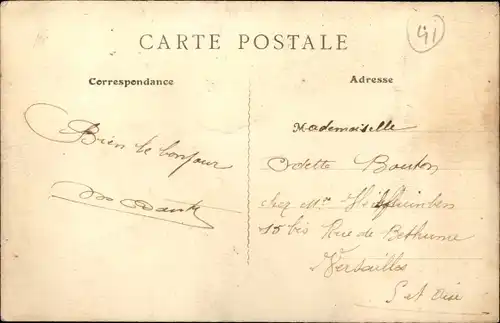 CARTE POSTALE
41
Correspondance
Bien le bonjour
Adresse
Mademoiselle
Odette Bouton
chez Mr
15 bis Rue de Bethune
Versailles
S et Oise